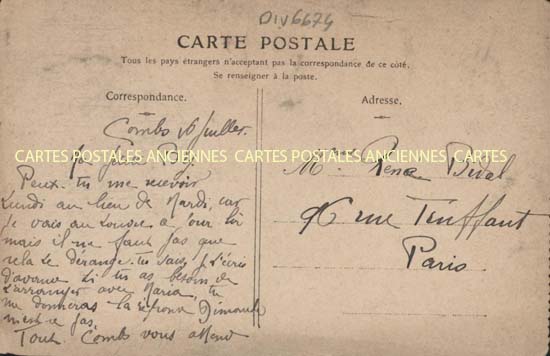 DIV6674
CARTE POSTALE
Tous les pays étrangers n'acceptant pas la correspondance de ce côté.
Se renseigner à la poste.
Correspondance.
Adresse.
Combs 16 Juillet.
CARTES POSTALES ANCIENNES CARTES POSTALES ANCIENNES
Peux-tu me recevoir
Lundi au lieu de Mardi, car
je vais au Louvre ce jour là
mais il ne faut pas que
cela te dérange. tu vois, j'écris
d'avance si tu as besoin de
t'arranger avec Maria, tu
me donneras la réponse Dimanche
n'est-ce pas,
Tout Combs vous attend
Renée
rue
Paris